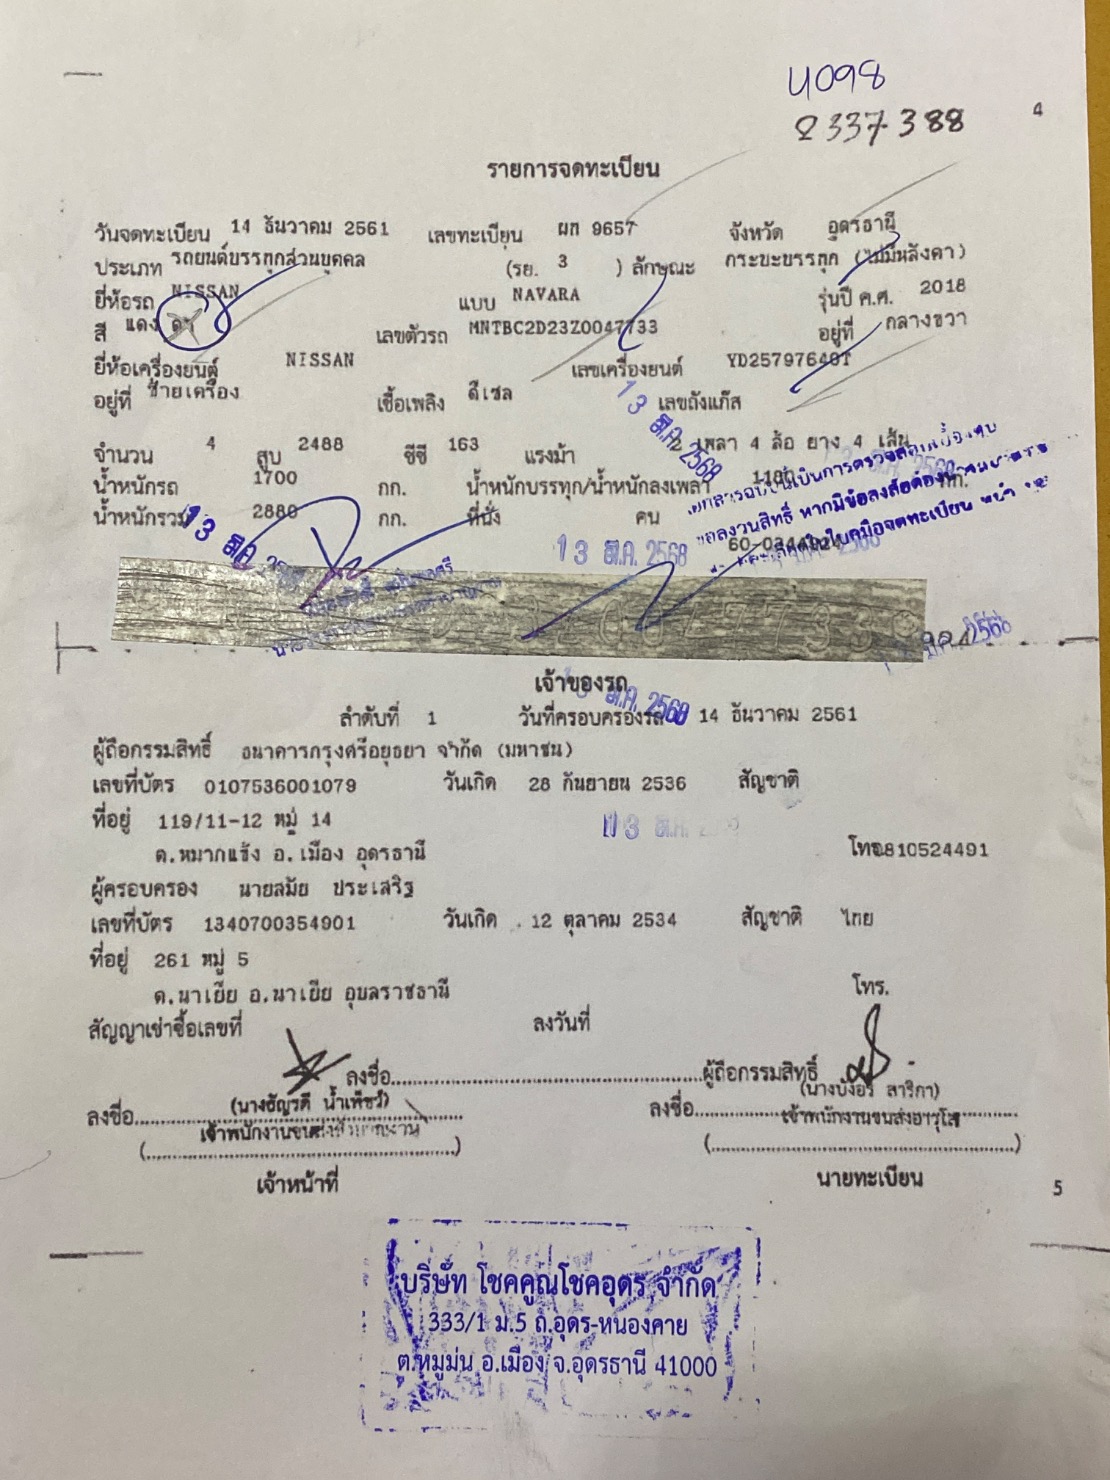 4098
2337388
4
รายการจดทะเบียน
วันจดทะเบียน 14 ธันวาคม 2561 เลขทะเบียน ผก 9657 จังหวัด อุดรธานี
ประเภท รถยนต์บรรทุกส่วนบุคคล (รย. 3 ) ลักษณะ กระบะบรรทุก (ไม่มีหลังคา)
ยี่ห้อรถ NISSAN แบบ NAVARA รุ่นปี ค.ศ. 2018
สี แดง เลขตัวรถ MNTBC2D23Z0047733 อยู่ที่ กลางขวา
ยี่ห้อเครื่องยนต์ NISSAN เลขเครื่องยนต์ YD25797640T
อยู่ที่ ซ้ายเครื่อง เชื้อเพลิง ดีเซล เลขถังแก๊ส
จำนวน 4 สูบ 2488 ซีซี 163 แรงม้า 2 เพลา 4 ล้อ ยาง 4 เส้น
น้ำหนักรถ 1700 กก. น้ำหนักบรรทุก/น้ำหนักลงเพลา 1180 กก.
น้ำหนักรวม 2880 กก. ที่นั่ง คน
13 มี.ค. 2568
13 มี.ค. 2568
13 มี.ค. 2568
เจ้าของรถ
13 มี.ค. 2568
ลำดับที่ 1 วันที่ครอบครองรถ 14 ธันวาคม 2561
ผู้ถือกรรมสิทธิ์ ธนาคารกรุงศรีอยุธยา จำกัด (มหาชน)
เลขที่บัตร 0107536001079 วันเกิด 28 กันยายน 2536 สัญชาติ
ที่อยู่ 119/11-12 หมู่ 14
13 มี.ค.
ต.หมากแข้ง อ.เมือง อุดรธานี โทร.0810524491
ผู้ครอบครอง นายสมัย ประเสริฐ
เลขที่บัตร 1340700354901 วันเกิด 12 ตุลาคม 2534 สัญชาติ ไทย
ที่อยู่ 261 หมู่ 5
ต.นาเยีย อ.นาเยีย อุบลราชธานี โทร.
สัญญาเช่าซื้อเลขที่ ลงวันที่
ลงชื่อ ผู้ถือกรรมสิทธิ์
(นางธัญรดี น้ำเพชร์) (นางบังอร สาริกา)
ลงชื่อ ลงชื่อ
เจ้าพนักงานขนส่ง เจ้าพนักงานขนส่งอาวุโส
เจ้าหน้าที่ นายทะเบียน
5
บริษัท โชคคูณโชคอุดร จำกัด
333/1 ม.5 ถ.อุดร-หนองคาย
ต.หมูม่น อ.เมือง จ.อุดรธานี 41000